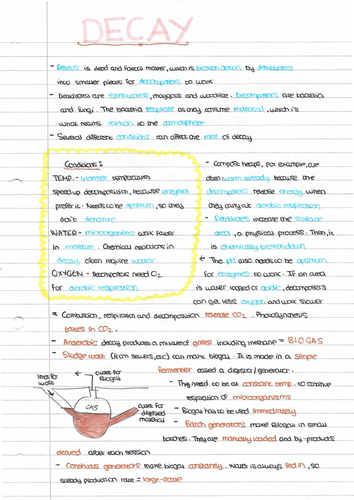 DECAY
- Detritus is dead and faecal matter, which is broken down by detritivores
into smaller pieces for decomposers to work
- Detritivores are earthworms, maggots and woodlice. Decomposers are bacteria
and fungi. The bacteria respirate as they consume material, which is
what returns carbon to the atmosphere
- Several different conditions can affect the rate of decay
Conditions:
TEMP - warmer temperatures
speed up decomposition, because enzymes
prefer it. Needs to be optimum, so they
don't denature
WATER - microorganisms work faster
in moisture. Chemical reactions in
decay often require water
OXYGEN - Decomposers need O2
for aerobic respiration
- Compost heaps, for example, are
often warm already because the
decomposers release energy when
they carry out aerobic respiration
- Detritivores increase the surface
area, a physical process. Then, it
is chemically broken down
- The pH also needs to be optimum
for enzymes to work. If an area
is water logged or acidic, decomposers
can get less oxygen and work slower
Combustion, respiration and decomposition release CO2. Photosynthesis
takes in CO2.
- Anaerobic decay produces a mixture of gases including methane = BIOGAS
- Sludge water (from sewers, etc) can make biogas. It is made in a simple
fermenter called a digester/generator.
inlet for
waste
outlet for
biogas
GAS
outlet for
digested
material
- They need to be at constant temp. to continue
respiration of microorganisms
- Biogas has to be used immediately
- Batch generators make biogas in small
batches. They are manually loaded and by-products
cleared after each session
- Continuous generators make biogas constantly. Water is always fed in, so
steady production rate = large-scale